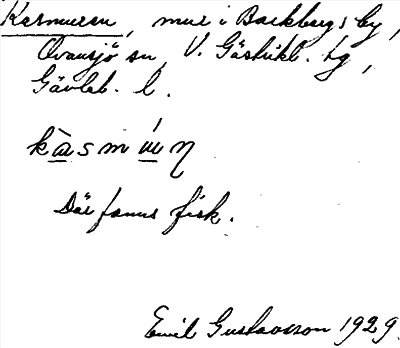 Kasmuren, mur i Backbergs by,
Ovansjö sn, V. Gästrikl. tg,
Gävleb. l.
Där fanns fisk.
Emil Gustavsson 1929.